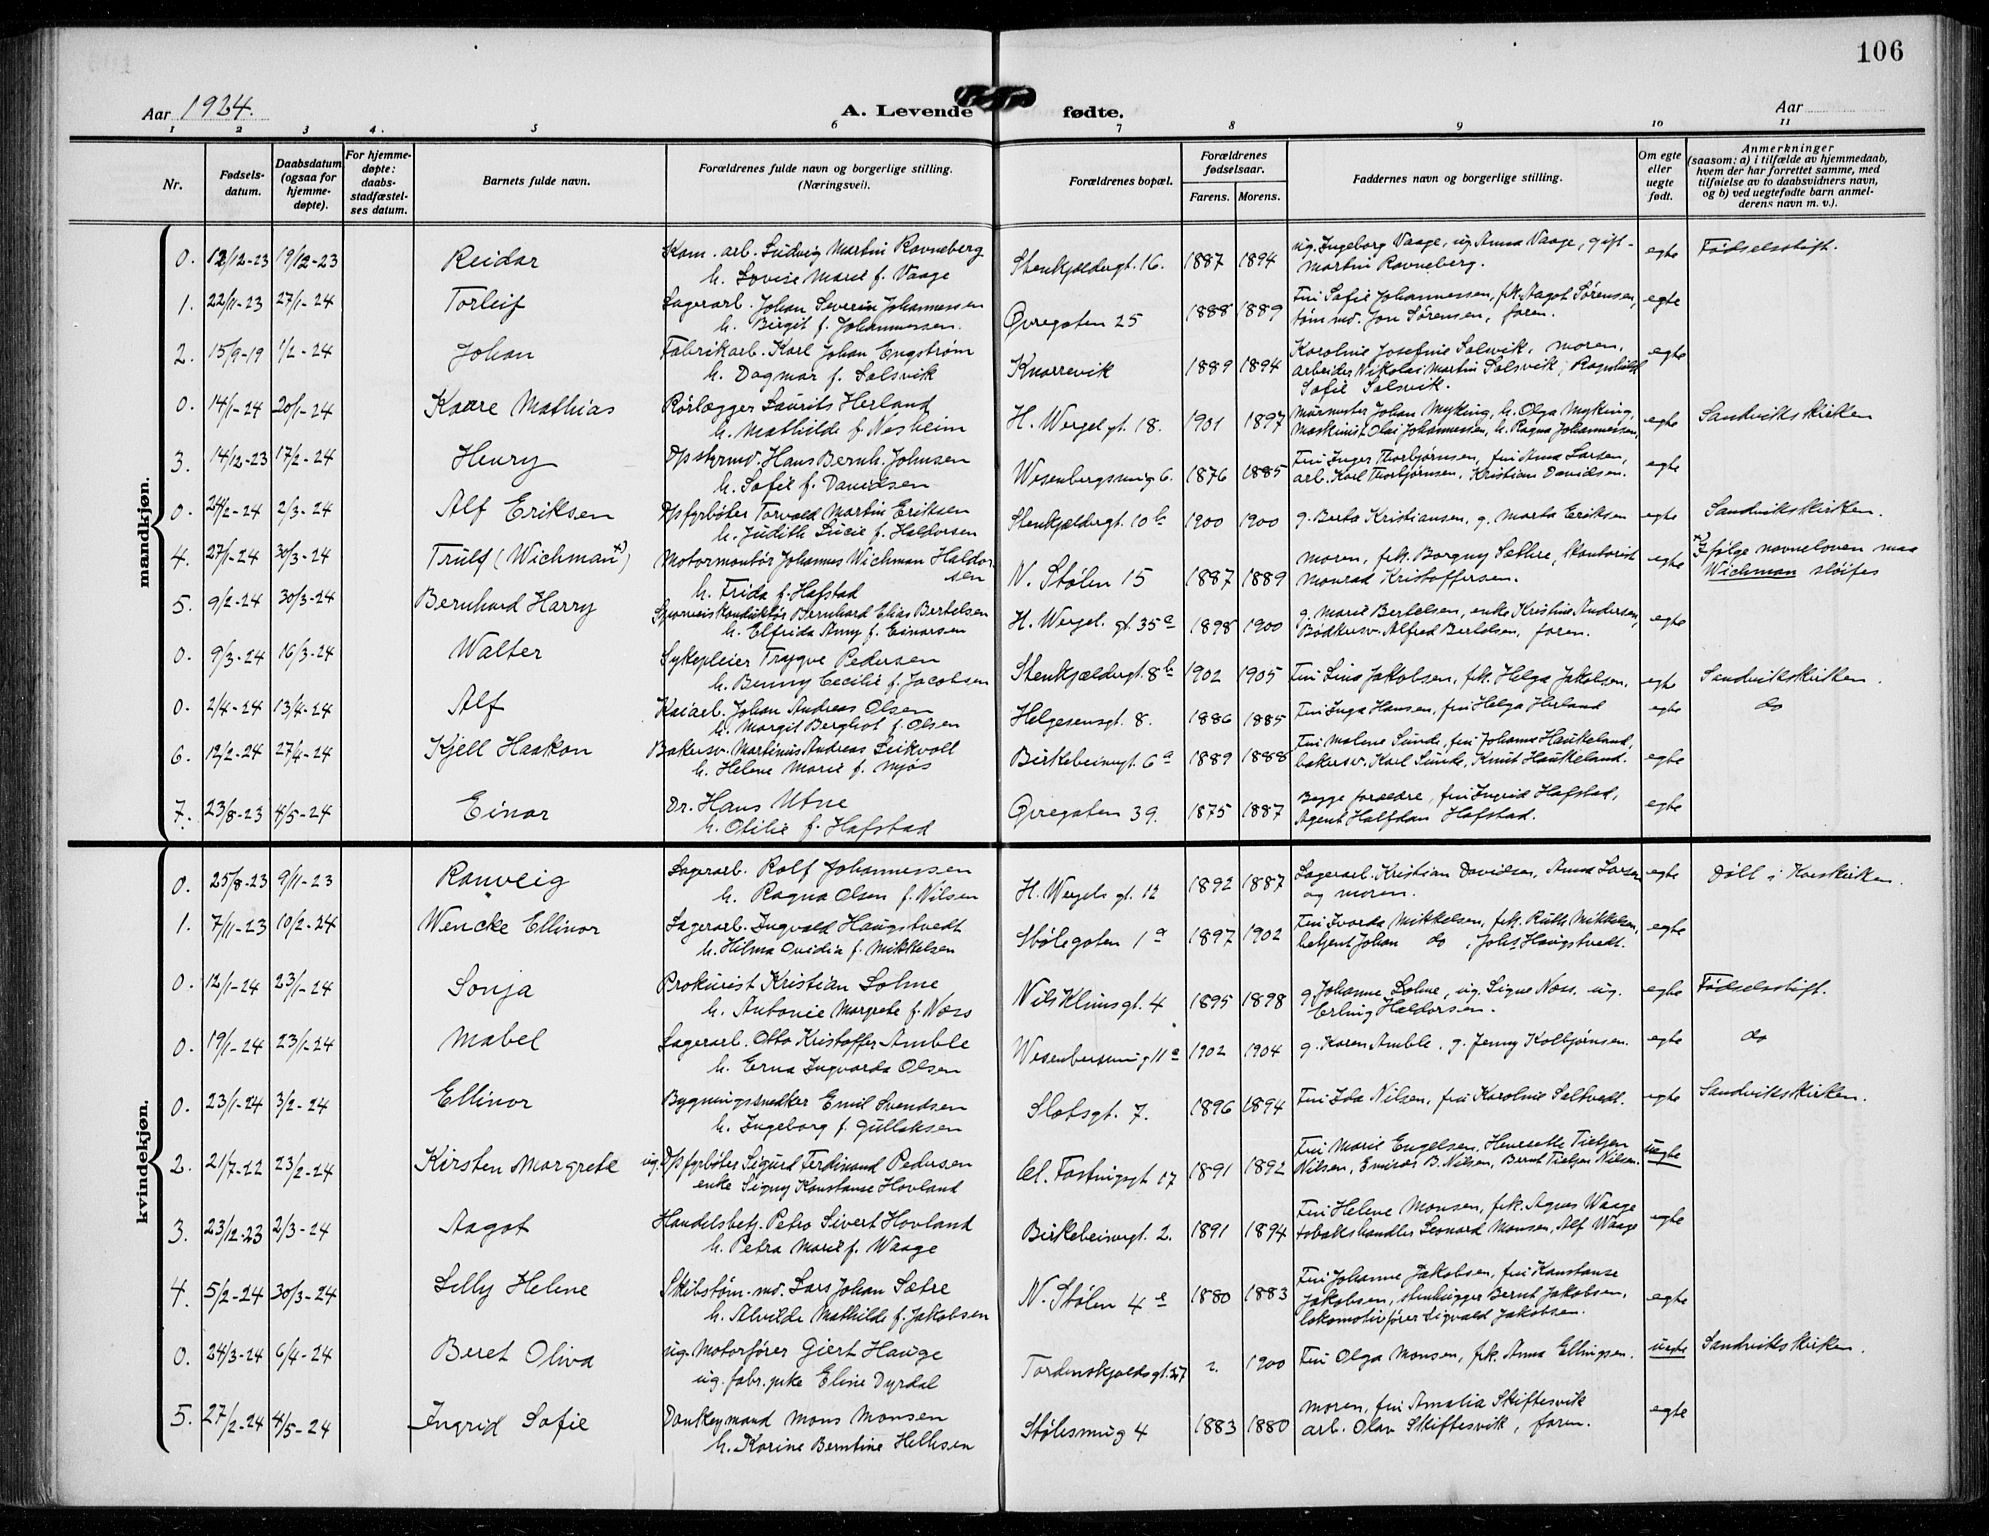 106
Aar 1924.
A. Levende fødte.
Aar
1 2 3 4. 5 6 7 8 9 10 11
Nr.
Fødsels-
datum.
Daabsdatum
(ogsaa for
hjemme-
døpte).
For hjemme-
døpte:
daabs-
stadfæstel-
ses datum.
Barnets fulde navn.
Forældrenes fulde navn og borgerlige stilling.
(Næringsvei).
Forældrenes bopæl.
Forældrenes
fødselsaar.
Farens. Morens.
Faddernes navn og borgerlige stilling.
Om egte
eller
uegte
født.
Anmerkninger
(saasom: a) i tilfælde av hjemmedaab,
hvem der har forrettet samme, med
tilføielse av to daabsvidners navn,
og b) ved uegtefødte barn anmel-
derens navn m. v.).
mandkjøn.
0. 12/12-23 19/12-23 Reidar Kom. arb. Ludvig Martin Rovneberg
h. Lovise Marie f. Vaage Stenkjældergt. 16. 1887 1894 ug. Ingeborg Vaage, ug. Anna Vaage, gift-
Martin Rovneberg. egte Fødselsstift.
1. 22/11-23 27/1-24 Torleif Lagerarb. Johan Severin Johannessen
h. Birgit f. Johannessen. Øvregaten 25 1888 1889 Fru Sofie Johannessen, frk. Aagot Sørensen,
tømmd. Jon Sørensen, faren. egte
2. 15/9-19 1/2-24 Johan Fabrikarb. Karl Johan Engstrøm
h. Dagmar f. Solsvik Knarrevik 1889 1894 Karoline Josefine Solsvik, moren,
arbeider Nikolai Martin Solsvik, Ragnhild
Sofie Solsvik. egte
0. 14/1-24 20/1-24 Kaare Mathias Rørlægger Laurits Herland
h. Mathilde f. Nesheim H. Wergel. gt. 18. 1901 1897 Murmester Johan Myking, h. Olga Myking,
Maskinist Olai Johannessen, h. Ragna Johannessen, egte Sandvikskirken
3. 14/12-23 17/2-24 Henry Dpstyrmd. Hans Bernh. Johnsen
h. Sofie f. Davidsen Wesenbergsmug 6. 1876 1885 Fru Inger Thorbjørnsen, fru Anna Larsen,
arb. Karl Thorbjørnsen, Kristian Davidsen. egte
0. 24/2-24 2/3-24 Alf Eriksen Dpfyrbøter Torvald Martin Eriksen
h. Judith Lucie f. Haldorsen Stenkjældergt. 10 b 1900 1900 g. Berta Kristiansen, g. Marta Eriksen egte Sandvikskirken.
4. 27/1-24 30/3-24 Trulf (Wichman x) Motormontør Johannes Wichman Haldor-
sen
h. Frida f. Hafstad N. Stølen 15 1887 1889 moren, frk. Borgny Sæthre, Kontorist
Monrad Kristoffersen. egte x) Ifølge navneloven maa
Wichman sløifes
5. 9/2-24 30/3-24 Bernhard Harry Sporveiskonduktør Bernhard Elias Bertelsen
h. Elfrida Anny f. Einarsen H. Wergel. gt. 35 a 1898 1900 g. Marie Bertelsen, enke Kristine Andersen,
Bødkersv. Alfred Bertelsen, faren. egte
0. 9/3-24 16/3-24 Walter Sykepleier Trygve Pedersen
h. Benny Cecilie f. Jacobsen Stenkjældergt. 8 b 1902 1905 Fru Lina Jakobsen, frk. Helga Jakobsen. egte Sandvikskirken.
0. 2/4-24 13/4-24 Alf Kaiarb. Johan Andreas Olsen
h. Margit Bergliot f. Olsen Helgesensgt. 8. 1886 1885 Fru Inga Hansen, fru Helga Herland egte do
6. 12/2-24 27/4-24 Kjell Haakon Bakersv. Martinus Andreas Leikvoll
h. Helene Marie f. Mjøs Birkebeinergt. 6 a 1889 1888 Fru Malene Sunde, fru Johanna Haukeland,
bakersv. Karl Sunde, Knut Haukeland. egte
7. 23/8-23 4/5-24 Einar Dr. Hans Utne
h. Otilie f. Hafstad Øvregaten 39. 1875 1887 Begge foreldre, fru Ingrid Hafstad,
Agent Halfdan Hafstad. egte
kvindekjøn.
0. 25/8-23 9/11-23 Ranveig Lagerarb. Rolf Johannessen
h. Ragna Olsen f. Nilsen H. Wergels gt 12 1892 1887 Lagerarb. Kristian Davidsen, Anna Larsen
og moren. egte Døbt i Korskirken.
1. 7/11-23 10/2-24 Wencke Ellinor Lagerarb. Ingvald Haugstvedt
h. Hilma Ovidia f. Mikkelsen Stølegaten 1 a 1897 1902 Fru Ivarda Mikkelsen, frk. Ruth Mikkelsen,
betjent Johan do, Johs Haugstvedt. egte
0. 12/1-24 23/1-24 Sonja Prokurist Kristian Lohne
h. Antonie Margrete f. Næss Nils Klimsgt. 4 1895 1898 g. Johanne Lohne, ug. Signe Næss, ug.
Erling Haldorsen. egte Fødselsstift.
0. 19/1-24 23/1-24 Mabel Lagerarb. Otto Kristoffer Amble
h. Erna Ingvarda Olsen Wesenbersmug 11 a 1902 1904 g. Karen Amble, g. Jenny Kolbjørnsen. egte do
0. 23/1-24 3/2-24 Ellinor Bygningssnedker Emil Svendsen
h. Ingeborg f. Gullaksen Slotsgt. 7. 1896 1894 Fru Ida Nilsen, fru Karoline Saltvedt. egte Sandvikskirken.
2. 21/7-22 23/2-24 Kirsten Margrete ug. Dpfyrbøter Sigurd Ferdinand Pedersen
enke Signy Konstanse Hovland Cl. Fastingsgt 17 1891 1892 Fru Marie Engelsen, Henrette Tietjen
Nilsen, Emisoe B. Nilsen, Bernt Tietjen Nilsen. uegte
3. 23/12-23 2/3-24 Aagot Handelsbetj. Petro Sivert Hovland
h. Petra Marie f. Waage Birkebeinergt. 2. 1891 1894 Fru Helene Monsen, frk. Agnes Waage
tobakshandler Leonard Monsen, Alf Waage egte
4. 5/2-24 30/3-24 Lilly Helene Skibstøm.md. Lars Johan Sætre
h. Alvilde Mathilde f. Jakobsen N. Stølen 4 e 1880 1883 Fru Johanne Jakobsen, fru Konstanse
Jakobsen, stenhugger Bernt Jakobsen,
lokomotivfører Sigvald Jakobsen. egte
0. 24/3-24 6/4-24 Beret Oliva ug. Motorfører Giert Hauge
ug. fabr. pike Eline Dyrdal Tordenskjoldsgt. 27 ? 1900 Fru Olga Monsen, frk. Anna Ellingsen. uegte Sandvikskirken.
5. 27/2-24 4/5-24 Ingrid Sofie Donkeymand Mons Monsen
h. Karine Berntine Hellesen Stølesmug 4 1883 1880 moren, fru Amalia Skiftesvik
arb. Olav Skiftesvik, faren. egte